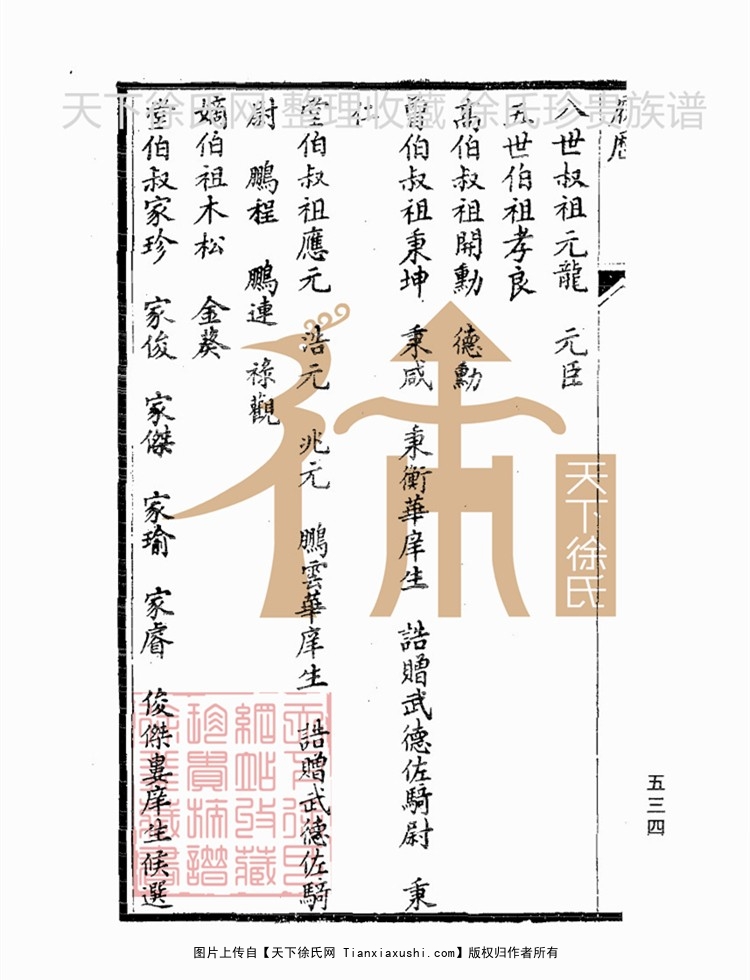 天下徐氏网 整理收藏 徐氏珍贵族谱
八世叔祖元龍 元臣
五世伯祖孝良
高伯叔祖開勳 德勳
曾伯叔祖秉坤 秉咸 秉衡華庠生 誥贈武德佐騎尉 秉
仁
堂伯叔祖應元 浩元 兆元 鵬雲華庠生 誥贈武德佐騎
尉 鵬程 鵬連 祿觀
嫡伯祖木松 金葵
堂伯叔家珍 家俊 家傑 家瑜 家睿 俊傑婁庠生候選
五三四
天下徐氏
天下徐氏
網站收藏
珍貴族譜
图片上传自【天下徐氏网 Tianxiaxushi.com】版权归作者所有